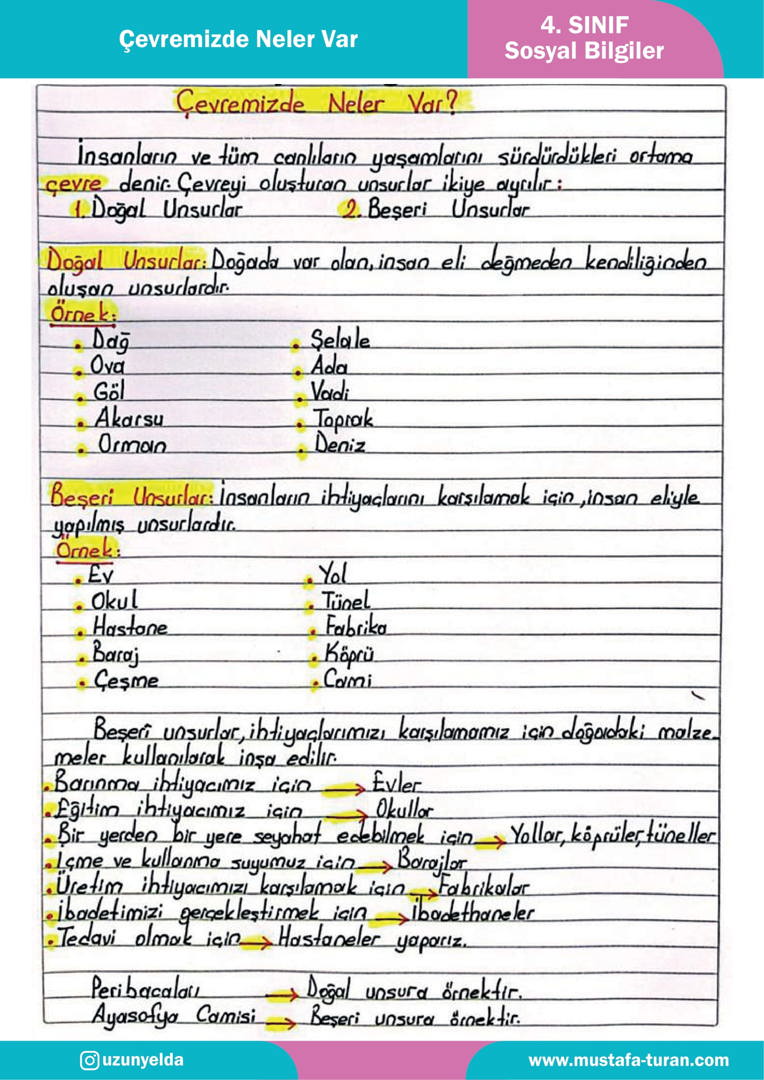 Çevremizde Neler Var
4. SINIF
Sosyal Bilgiler
Çevremizde Neler Var?
İnsanların ve tüm canlıların yaşamlarını sürdürdükleri ortama
çevre denir. Çevreyi oluşturan unsurlar ikiye ayrılır:
1. Doğal Unsurlar 2. Beşeri Unsurlar
Doğal Unsurlar: Doğada var olan, insan eli değmeden kendiliğinden
oluşan unsurlardır.
Örnek:
• Dağ • Şelale
• Ova • Ada
• Göl • Vadi
• Akarsu • Toprak
• Orman • Deniz
Beşeri Unsurlar: İnsanların ihtiyaçlarını karşılamak için, insan eliyle
yapılmış unsurlardır.
Örnek:
• Ev • Yol
• Okul • Tünel
• Hastane • Fabrika
• Baraj • Köprü
• Çeşme • Cami
Beşerî unsurlar, ihtiyaçlarımızı karşılamamız için doğadaki malze-
meler kullanılarak inşa edilir.
• Barınma ihtiyacımız için → Evler
• Eğitim ihtiyacımız için → Okullar
• Bir yerden bir yere seyahat edebilmek için → Yollar, köprüler, tüneller
• İçme ve kullanma suyumuz için → Barajlar
• Üretim ihtiyacımızı karşılamak için → Fabrikalar
• İbadetimizi gerçekleştirmek için → ibadethaneler
• Tedavi olmak için → Hastaneler yaparız.
Peribacaları → Doğal unsura örnektir.
Ayasofya Camisi → Beşeri unsura örnektir.
uzunyelda
www.mustafa-turan.com